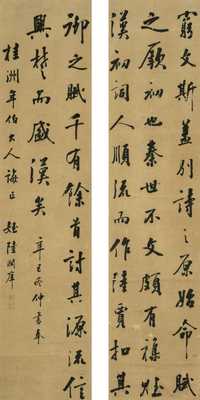 窮文斯蓋別詩之原始命賦
之厥初也秦世不文頗有雜賦
漢初詞人順流而作陸賈扣其
御之賦千有餘首討其源流信
興楚而盛漢矣
桂洲年伯大人誨正
辛巳冬仲書奉
姪陸潤庠